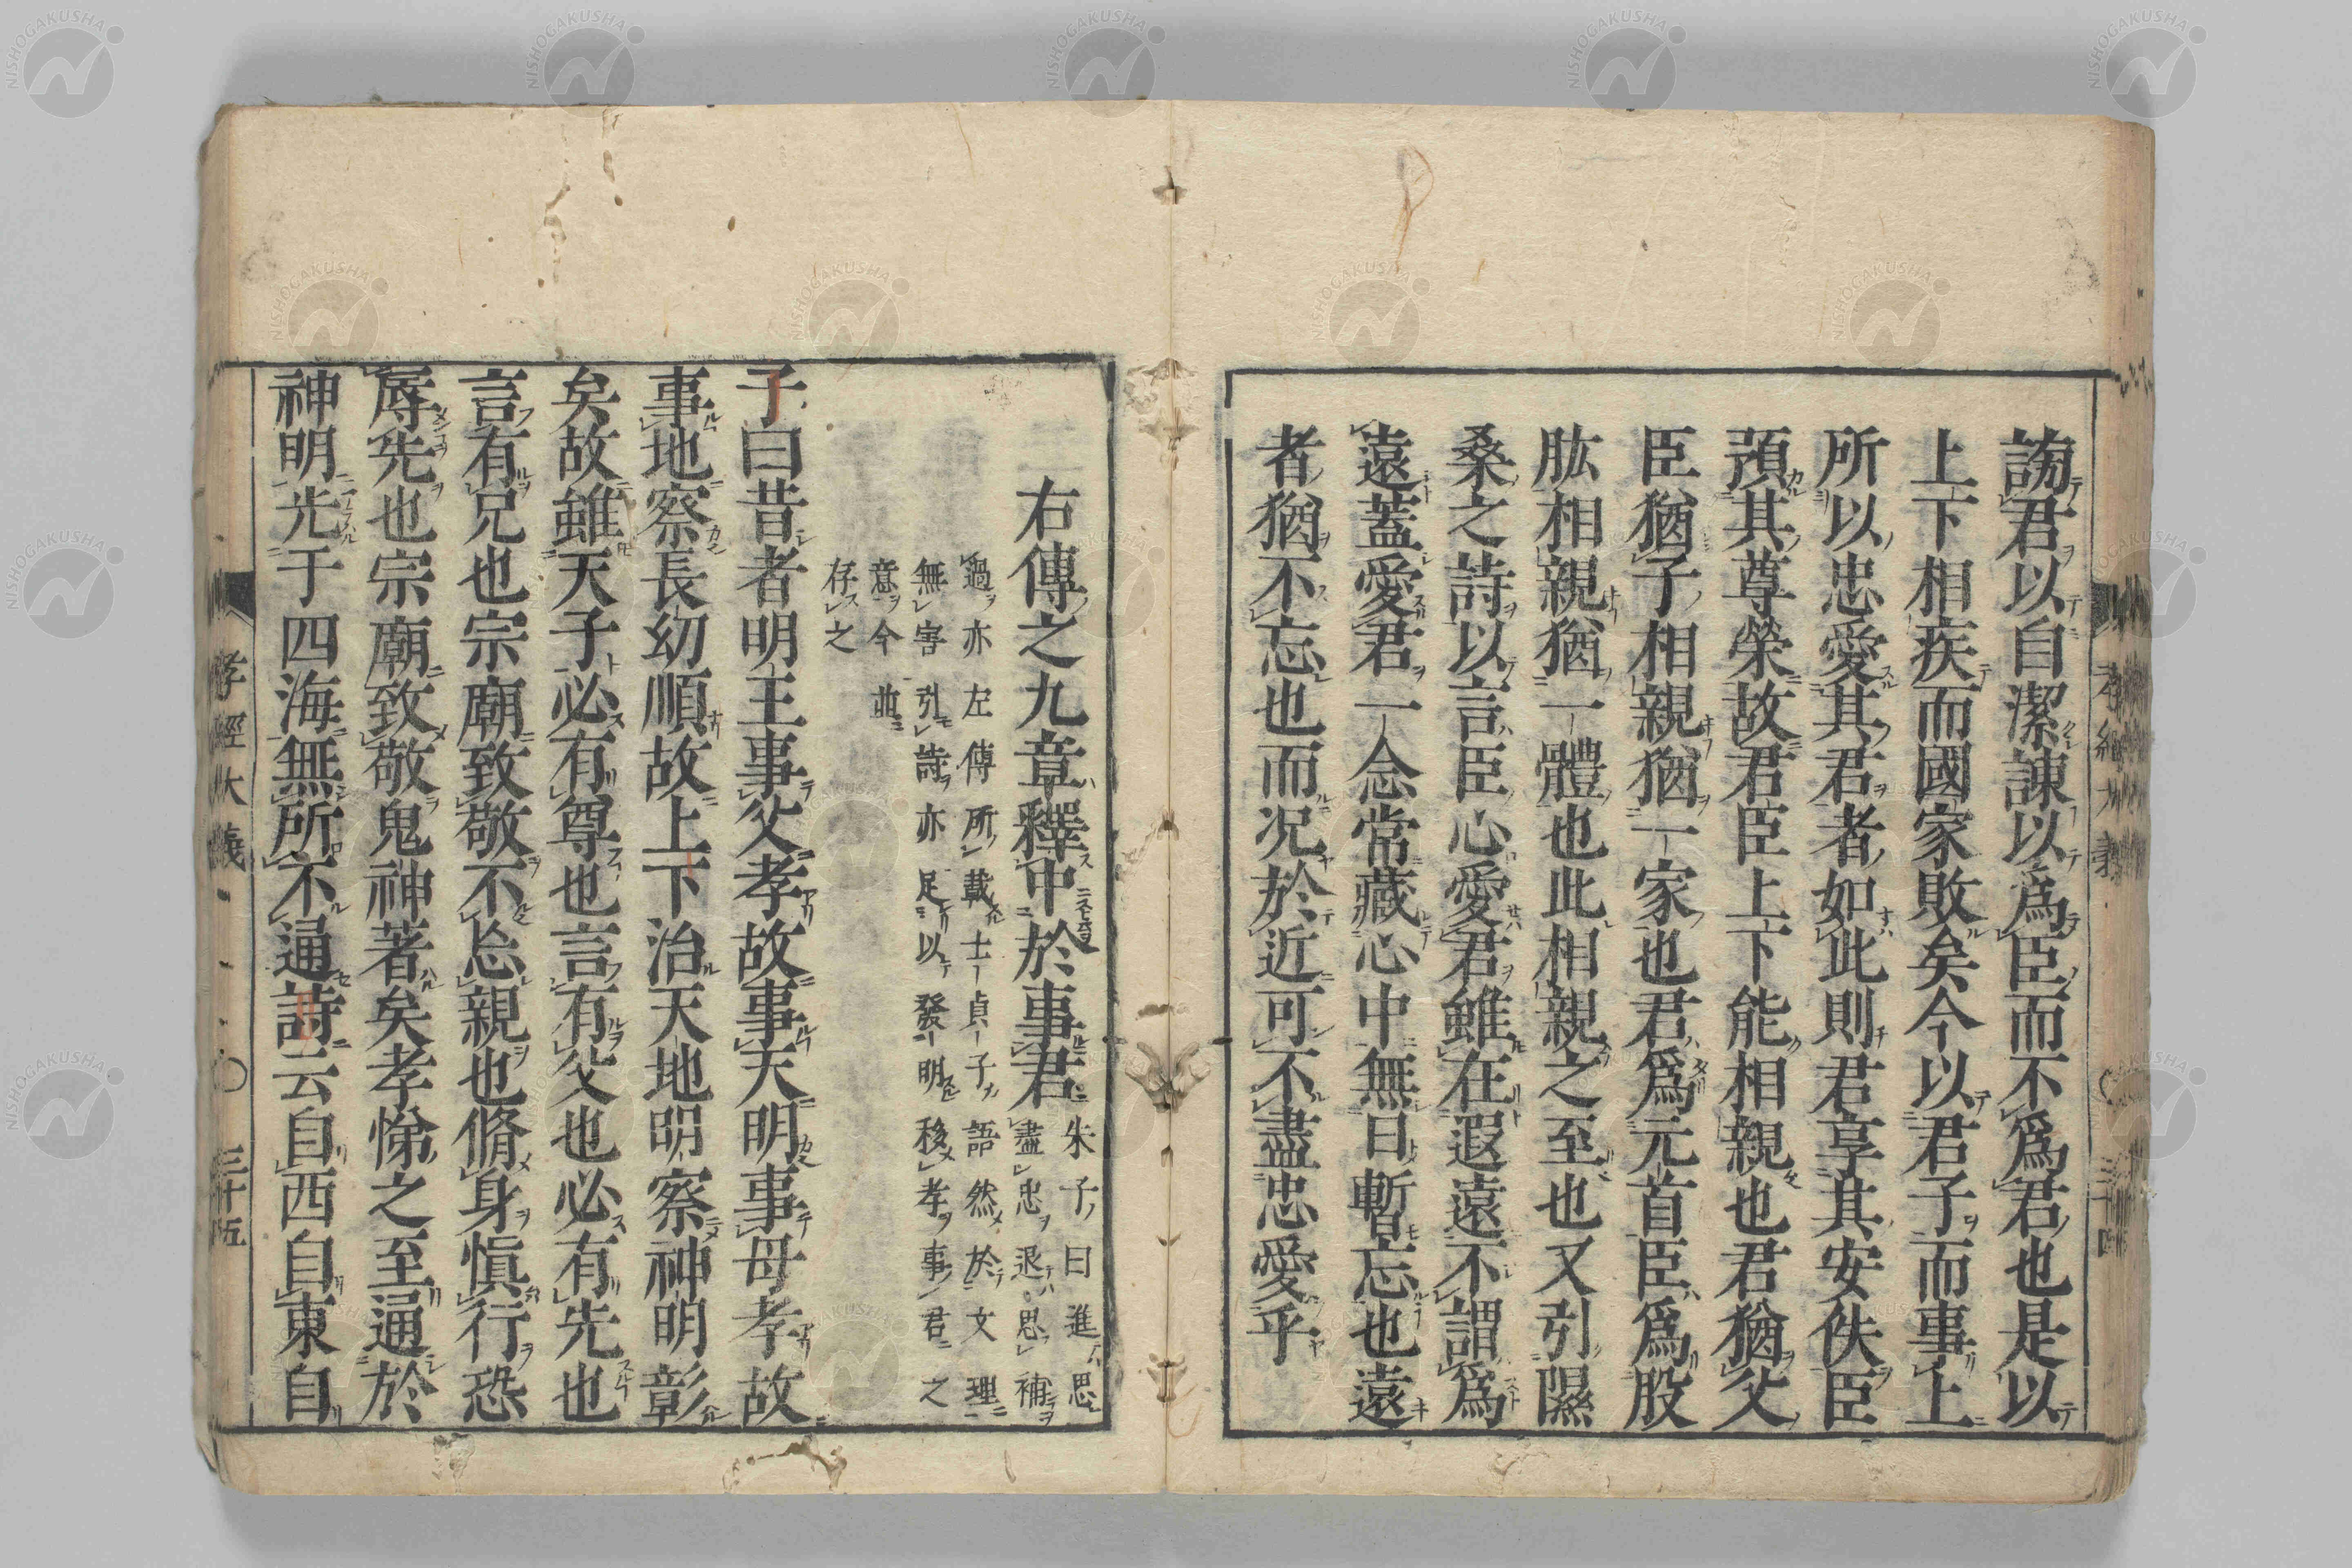 謗君以自潔諫以爲臣而不爲君也是以
上下相疾而國家敗矣今以君子而事上
所以忠愛其君者如此則君享其安佚臣
預其尊榮故君臣上下能相親也君猶父
臣猶子相親猶一家也君爲元首臣爲股
肱相親猶一體也此相親之至也又引隰
桑之詩以言臣心愛君雖在遐遠不謂爲
遠蓋愛君一念常藏心中無日暫忘也遠
者猶不忘也而況於近可不盡忠愛乎
右傳之九章釋中於事君
朱子曰進思
盡忠退思補
過亦左傳所載士貞子語然於文理
無害引詩亦足以發明移孝事君之
意今並
存之
子曰昔者明王事父孝故事天明事母孝故
事地察長幼順故上下治天地明察神明彰
矣故雖天子必有尊也言有父也必有先也
言有兄也宗廟致敬不忘親也脩身愼行恐
辱先也宗廟致敬鬼神著矣孝悌之至通於
神明光于四海無所不通詩云自西自東自
孝經大義
三十五
NISHOGAKUSHA